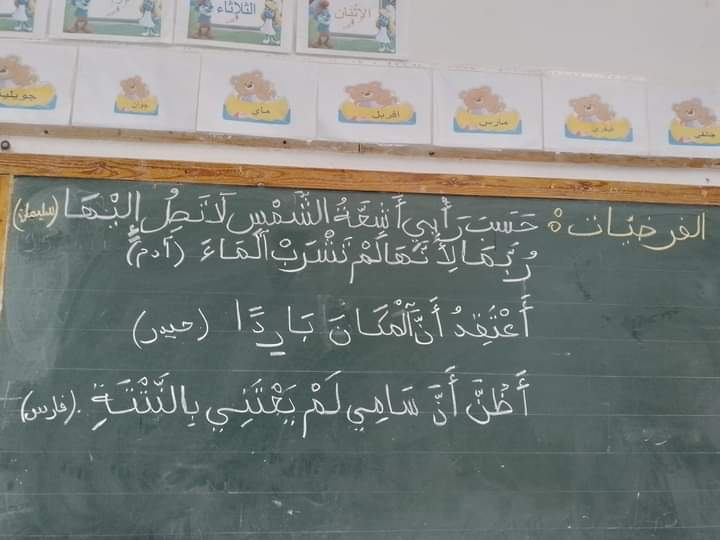 الثلاثاء الإثنان
جويلية جوان ماي أفريل مارس فيفري جانفي
الفرضيات: حَسَبَ رَأْيِي أَشِعَّةُ الشَّمْسِ لَا تَصِلُ إِلَيْهَا (سليمان)
رُبَّمَا لِأَنَّهَا لَمْ تَشْرَبْ الْمَاءَ (آدم)
أَعْتَقِدُ أَنَّ الْمَكَانَ بَارِدًا (حيدر)
أَظُنُّ أَنَّ سَامِي لَمْ يَعْتَنِي بِالنَّبْتَةِ. (فارس)